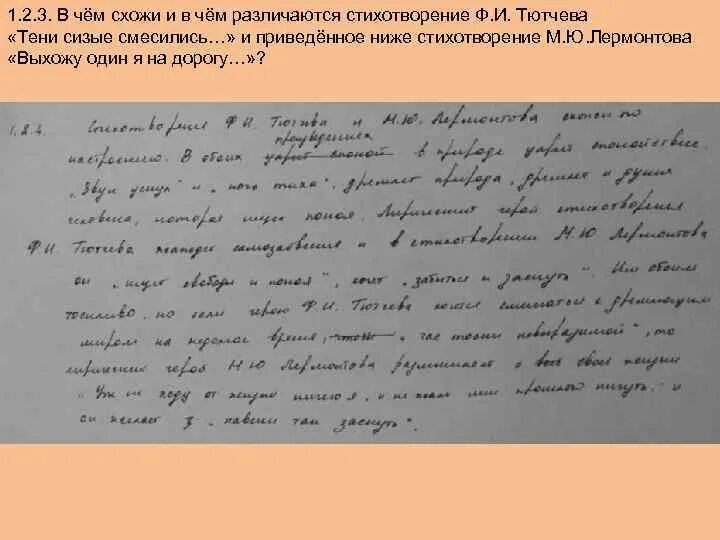 1.2.3. В чём схожи и в чём различаются стихотворение Ф.И. Тютчева
«Тени сизые смесились…» и приведённое ниже стихотворение М.Ю.Лермонтова
«Выхожу один я на дорогу…»?
1.2.4. Стихотворения Ф.И. Тютчева и М.Ю. Лермонтова схожи по
произведениях
настроению. В обоих царит покой в природе царит спокойствие
„Звук уснул" и „ночь тиха", дремлет природа, дремлет и душа
человека, которая ищет покоя. Лирический герой стихотворения
Ф.И. Тютчева жаждет самозабвения и в стихотворении М.Ю Лермонтова
он „ищет свободы и покоя", хочет „забыться и заснуть". Им обоим
тоскливо, но если герою Ф.И. Тютчева хочется смешаться с дремлющим
миром на недолгое время, „час тоски невыразимой", то
лирический герой М.Ю Лермонтова размышляет о всей своей жизни
„Уж не жду от жизни ничего я, и не жаль мне прошлого ничуть" и
он желает „навеки так заснуть".